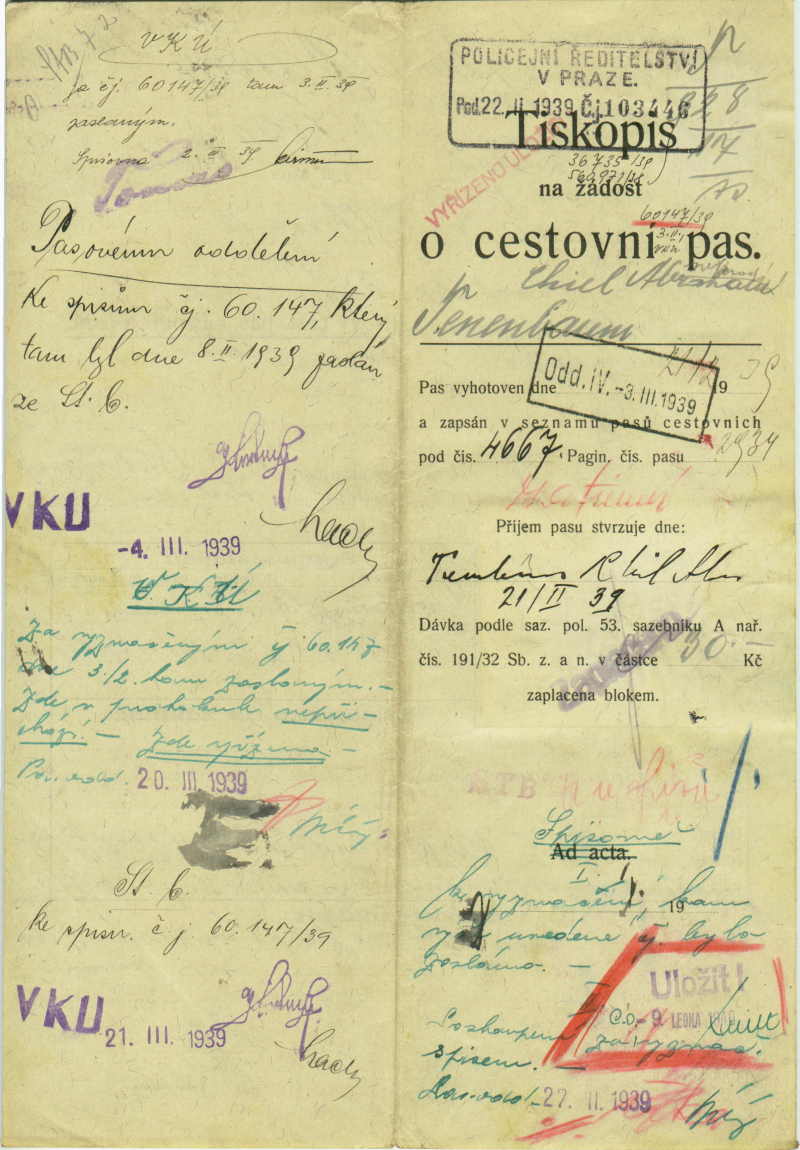 V K Ú
čj. 60147/39 tam 3. II. 39
zaslaným.
Spisovna 2. III 39
Pasovému oddělení
Ke spisům čj. 60.147, který
tam byl dne 8. II 1939 zaslán
ze St. b.
VKU
-4. III. 1939
V. K. Ú
Za vyznačeným čj. 60.147
dne 3./2. tam zaslaným. –
Zde v protokole nepři-
chází! – Zde vyřízeno –
Pas. odd. 20. III 1939
St. b.
ke spisu č. j. 60.147/39
VKU
21. III. 1939
POLICEJNÍ ŘEDITELSTVÍ
V PRAZE.
Pod. 22. II. 1939 Čj. 103446
VYŘÍZENO ULOŽIT
Tiskopis
36735/39
na žádost
60147/39
o cestovní pas.
Chiel Abraham
Tenenbaum
Pas vyhotoven dne 21/2 19 39
Odd. IV. -3. III. 1939
a zapsán v seznamu pasů cestovních
pod čis. 4667. Pagin. čis. pasu 2934
Příjem pasu stvrzuje dne:
21/II 39
Dávka podle saz. pol. 53. sazebníku A nař.
čís. 191/32 Sb. z. a n. v částce 30.– Kč
zaplacena blokem.
Spisovně
Ad acta.
19
k vyznačení, kam
uvedené čj. bylo
zasláno. –
Uložit!
Č.O. -9. LEDNA
Postoupení
za vyznač.
spisem. –
Pas. odd. -27. II. 1939